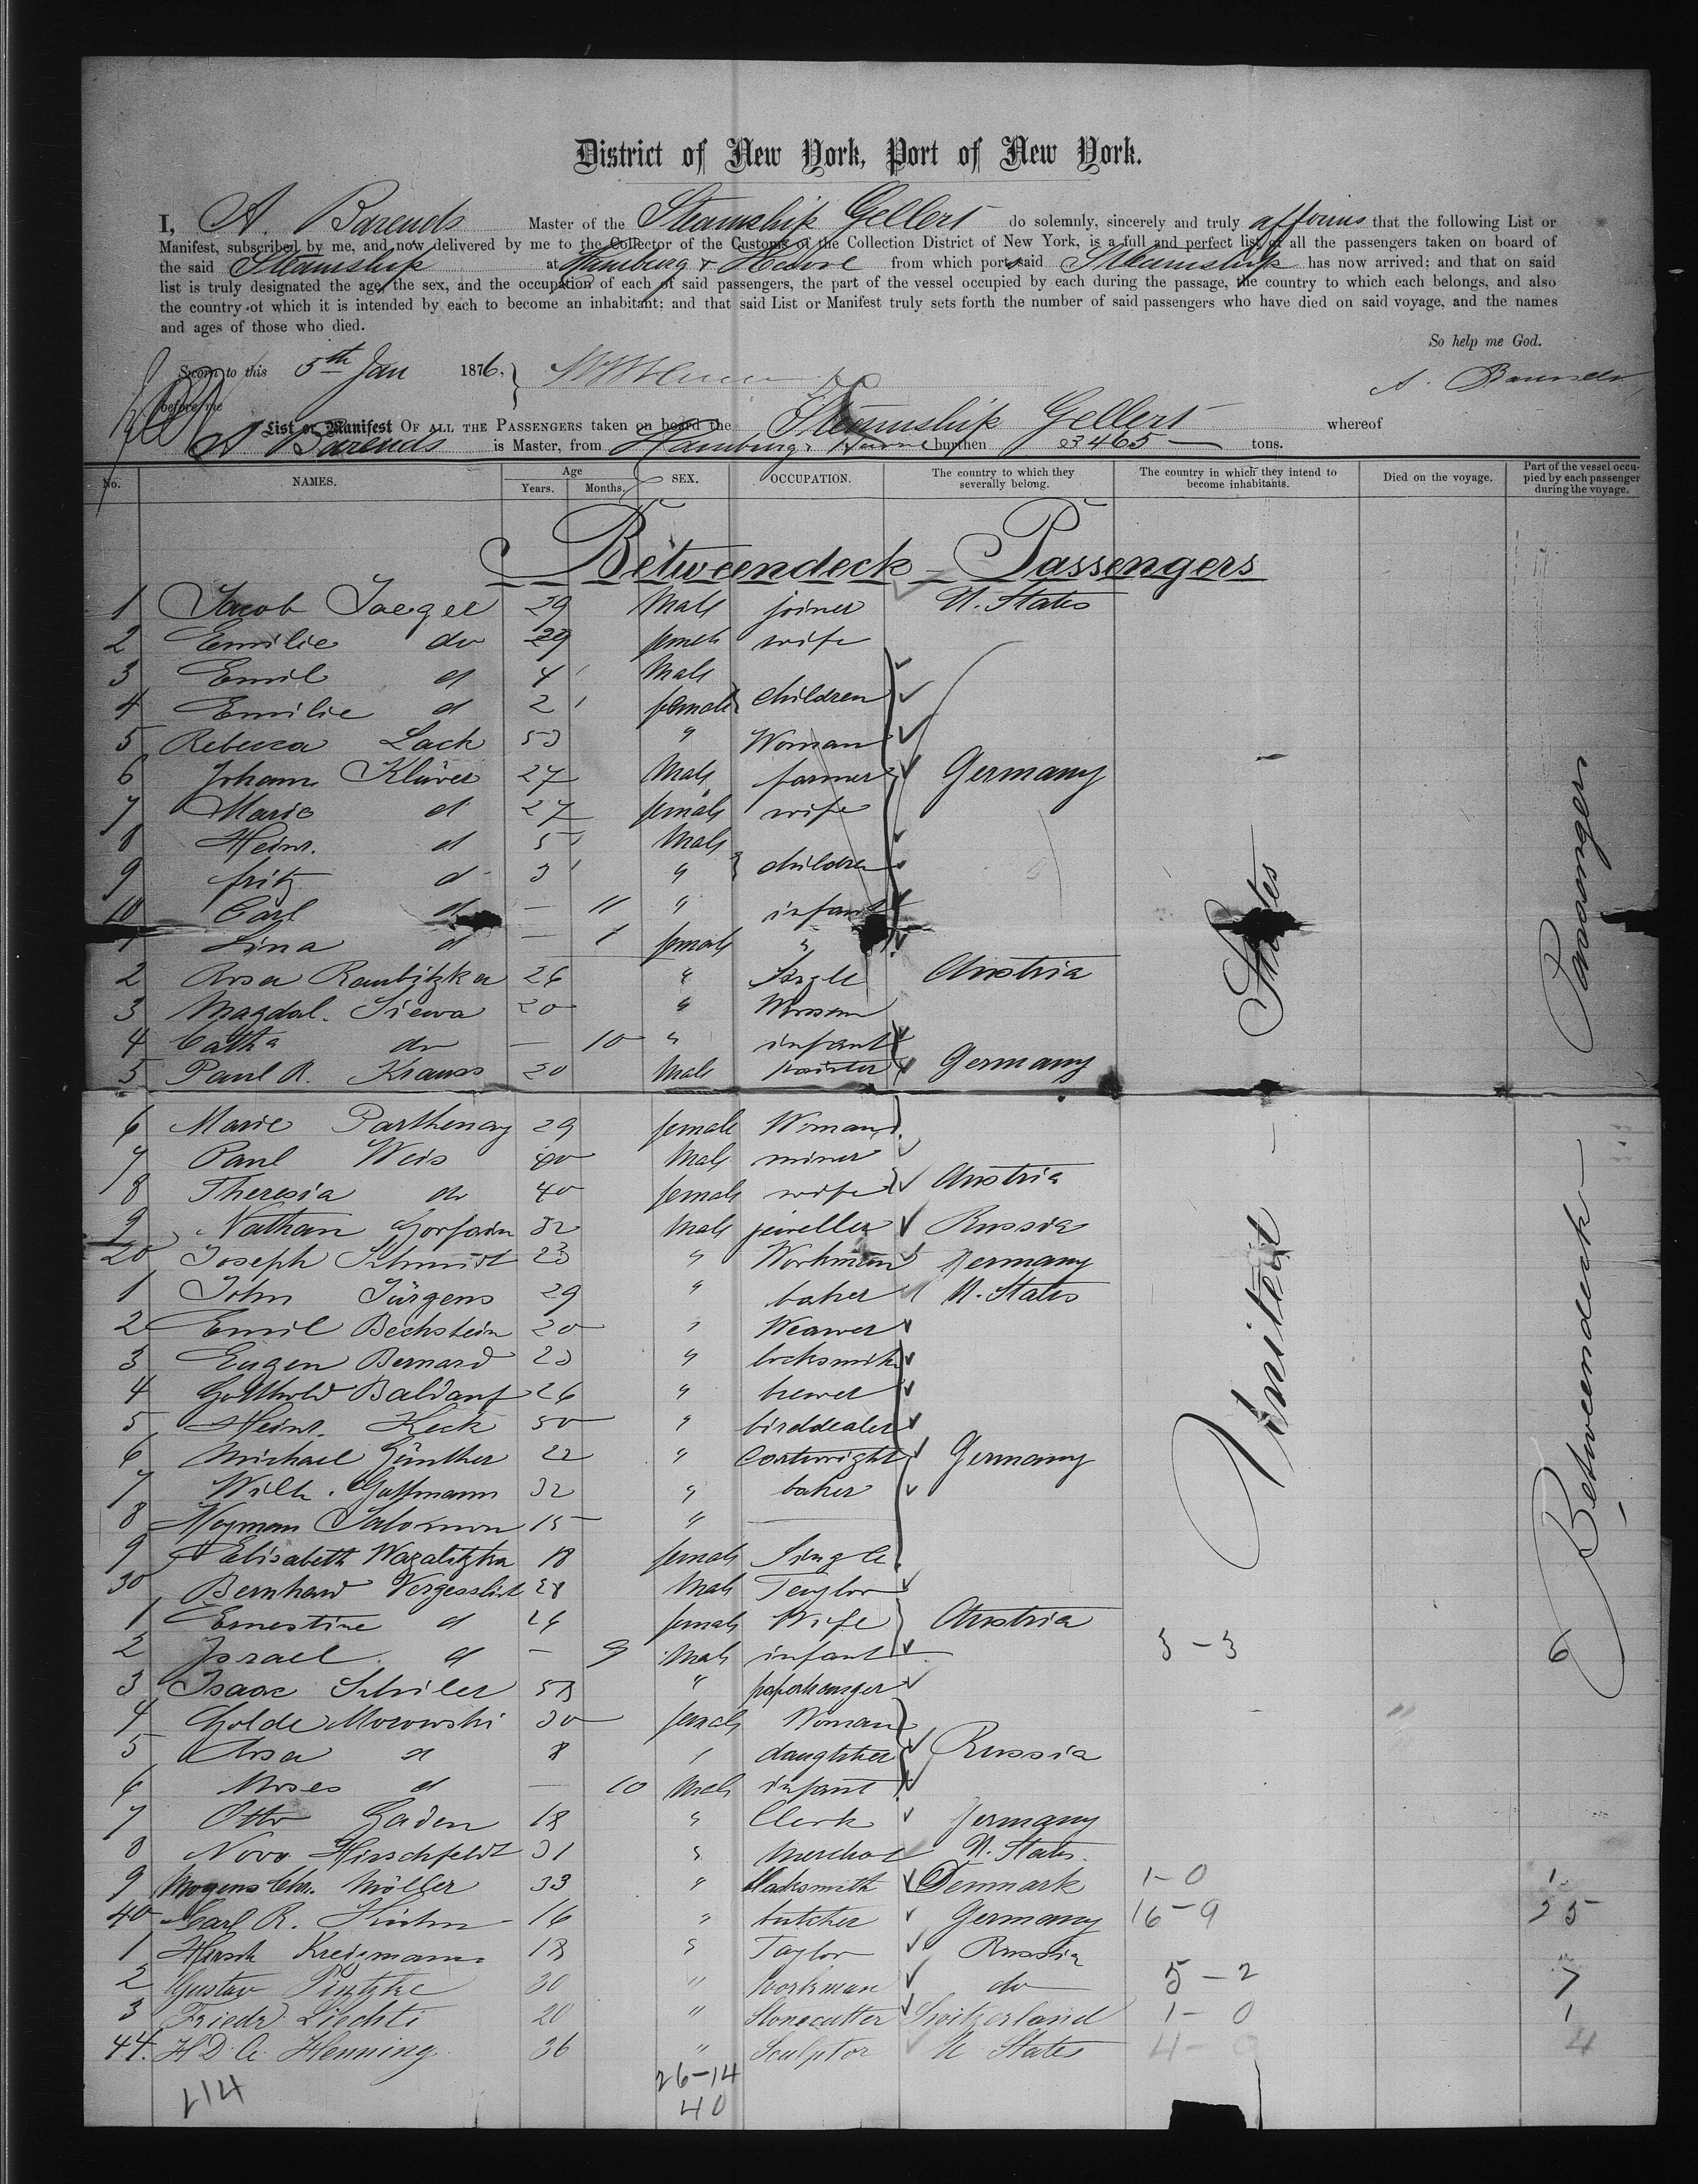 District of New York, Port of New York.
I, A. Barends Master of the Steamship Gellert do solemnly, sincerely and truly affirms that the following List or
Manifest, subscribed by me, and now delivered by me to the Collector of the Customs of the Collection District of New York, is a full and perfect list of all the passengers taken on board of
the said Steamship at Hamburg & Havre from which ports said Steamship has now arrived; and that on said
list is truly designated the age, the sex, and the occupation of each of said passengers, the part of the vessel occupied by each during the passage, the country to which each belongs, and also
the country of which it is intended by each to become an inhabitant; and that said List or Manifest truly sets forth the number of said passengers who have died on said voyage, and the names
and ages of those who died.
So help me God.
Sworn to this 5th Jan 1876,
before me
A. Barends
List or Manifest OF ALL THE PASSENGERS taken on board the Steamship Gellert whereof
A Barends is Master, from Hamburg & Havre burthen 3465 tons.
No. NAMES. Age Years. Months. SEX. OCCUPATION. The country to which they severally belong. The country in which they intend to become inhabitants. Died on the voyage. Part of the vessel occupied by each passenger during the voyage.
Betweendeck - Passengers
1 Jacob Jaeger 29 Male joiner U. States
2 Emilie do 29 female wife
3 Emil d 4 Male
4 Emilie d 2 female children
5 Rebecca Lack 53 " Woman
6 Johann Klüver 27 Male farmer Germany
7 Marie d 27 female wife
8 Heinr. d 5 Male
9 fritz d 3 " children
10 Carl d — 11 " infant
1 Lina d — 1 female "
2 Rantzitzka 26 " Single Austria
3 Magdal. Siewa 20 " Woman
4 Catha do — 10 " infant
5 Paul R. Krauss 30 Male painter Germany
6 Marie Parthenay 29 female Woman
7 Paul Weis 40 Male miner
8 Theresia do 40 female wife Austria
9 Nathan Gorfain 32 Male jeweller Russia
20 Joseph Schmidt 23 " Workman Germany
1 John Jürgens 29 " baker U. States
2 Emil Bechstein 20 " Weawer
3 Eugen Bernard 23 " locksmith
4 Gotthold Baldauf 26 " brewer
5 Heinr. Keck 50 " birddealer
6 Michael Günther 22 " Cartwright Germany
7 Wilh. Guttmann 32 " baker
8 Heyman Salomon 15 " —
9 Elisabeth Wazalitzka 18 female Single
30 Bernhard Vergesslich 28 Male Taylor
1 Ernestine d 24 female Wife Austria
2 Israel d — 9 Male infant 3 - 3 6
3 Isaac Schiler 58 " paperhanger
4 Golde Morowski 30 female Woman
5 d 8 " daughter Russia
6 Moses d — 10 Male infant
7 Otto Gaden 18 " Clerk Germany
8 Hirschfeldt 31 " merchant U. States
9 Mogens Chr. Möller 33 " blacksmith Denmark 1 - 0 1
40 Carl R. 16 " butcher Germany 16 - 9 25
1 Hirsch Kreismann 18 " Taylor Russia
2 Gustav 30 " Workman do 5 - 2 7
3 Friedr Liechti 20 " Stonecutter Switzerland 1 - 0 1
44. H D. C. Henning 36 " Sculptor U States 4 - 0 4
26-14
40
United States
Betweendeck Passengers